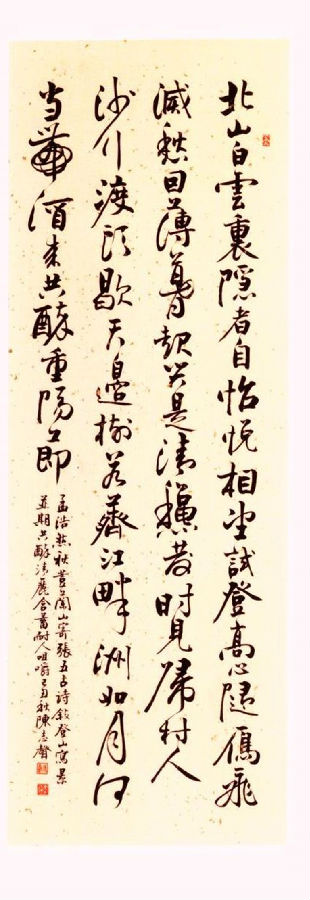 北山白雲裏隱者自怡悅相望試登高心隨鴈飛
滅愁因薄暮起興是清穐發時見歸村人
沙行渡頭歇天邊樹若薺江畔洲如月何
當載酒來共醉重陽節
孟浩然秋登蘭山寄張五古詩敘登山寫景
並期共醉清麗含蓄耐人咀嚼己丑秋陳志聲